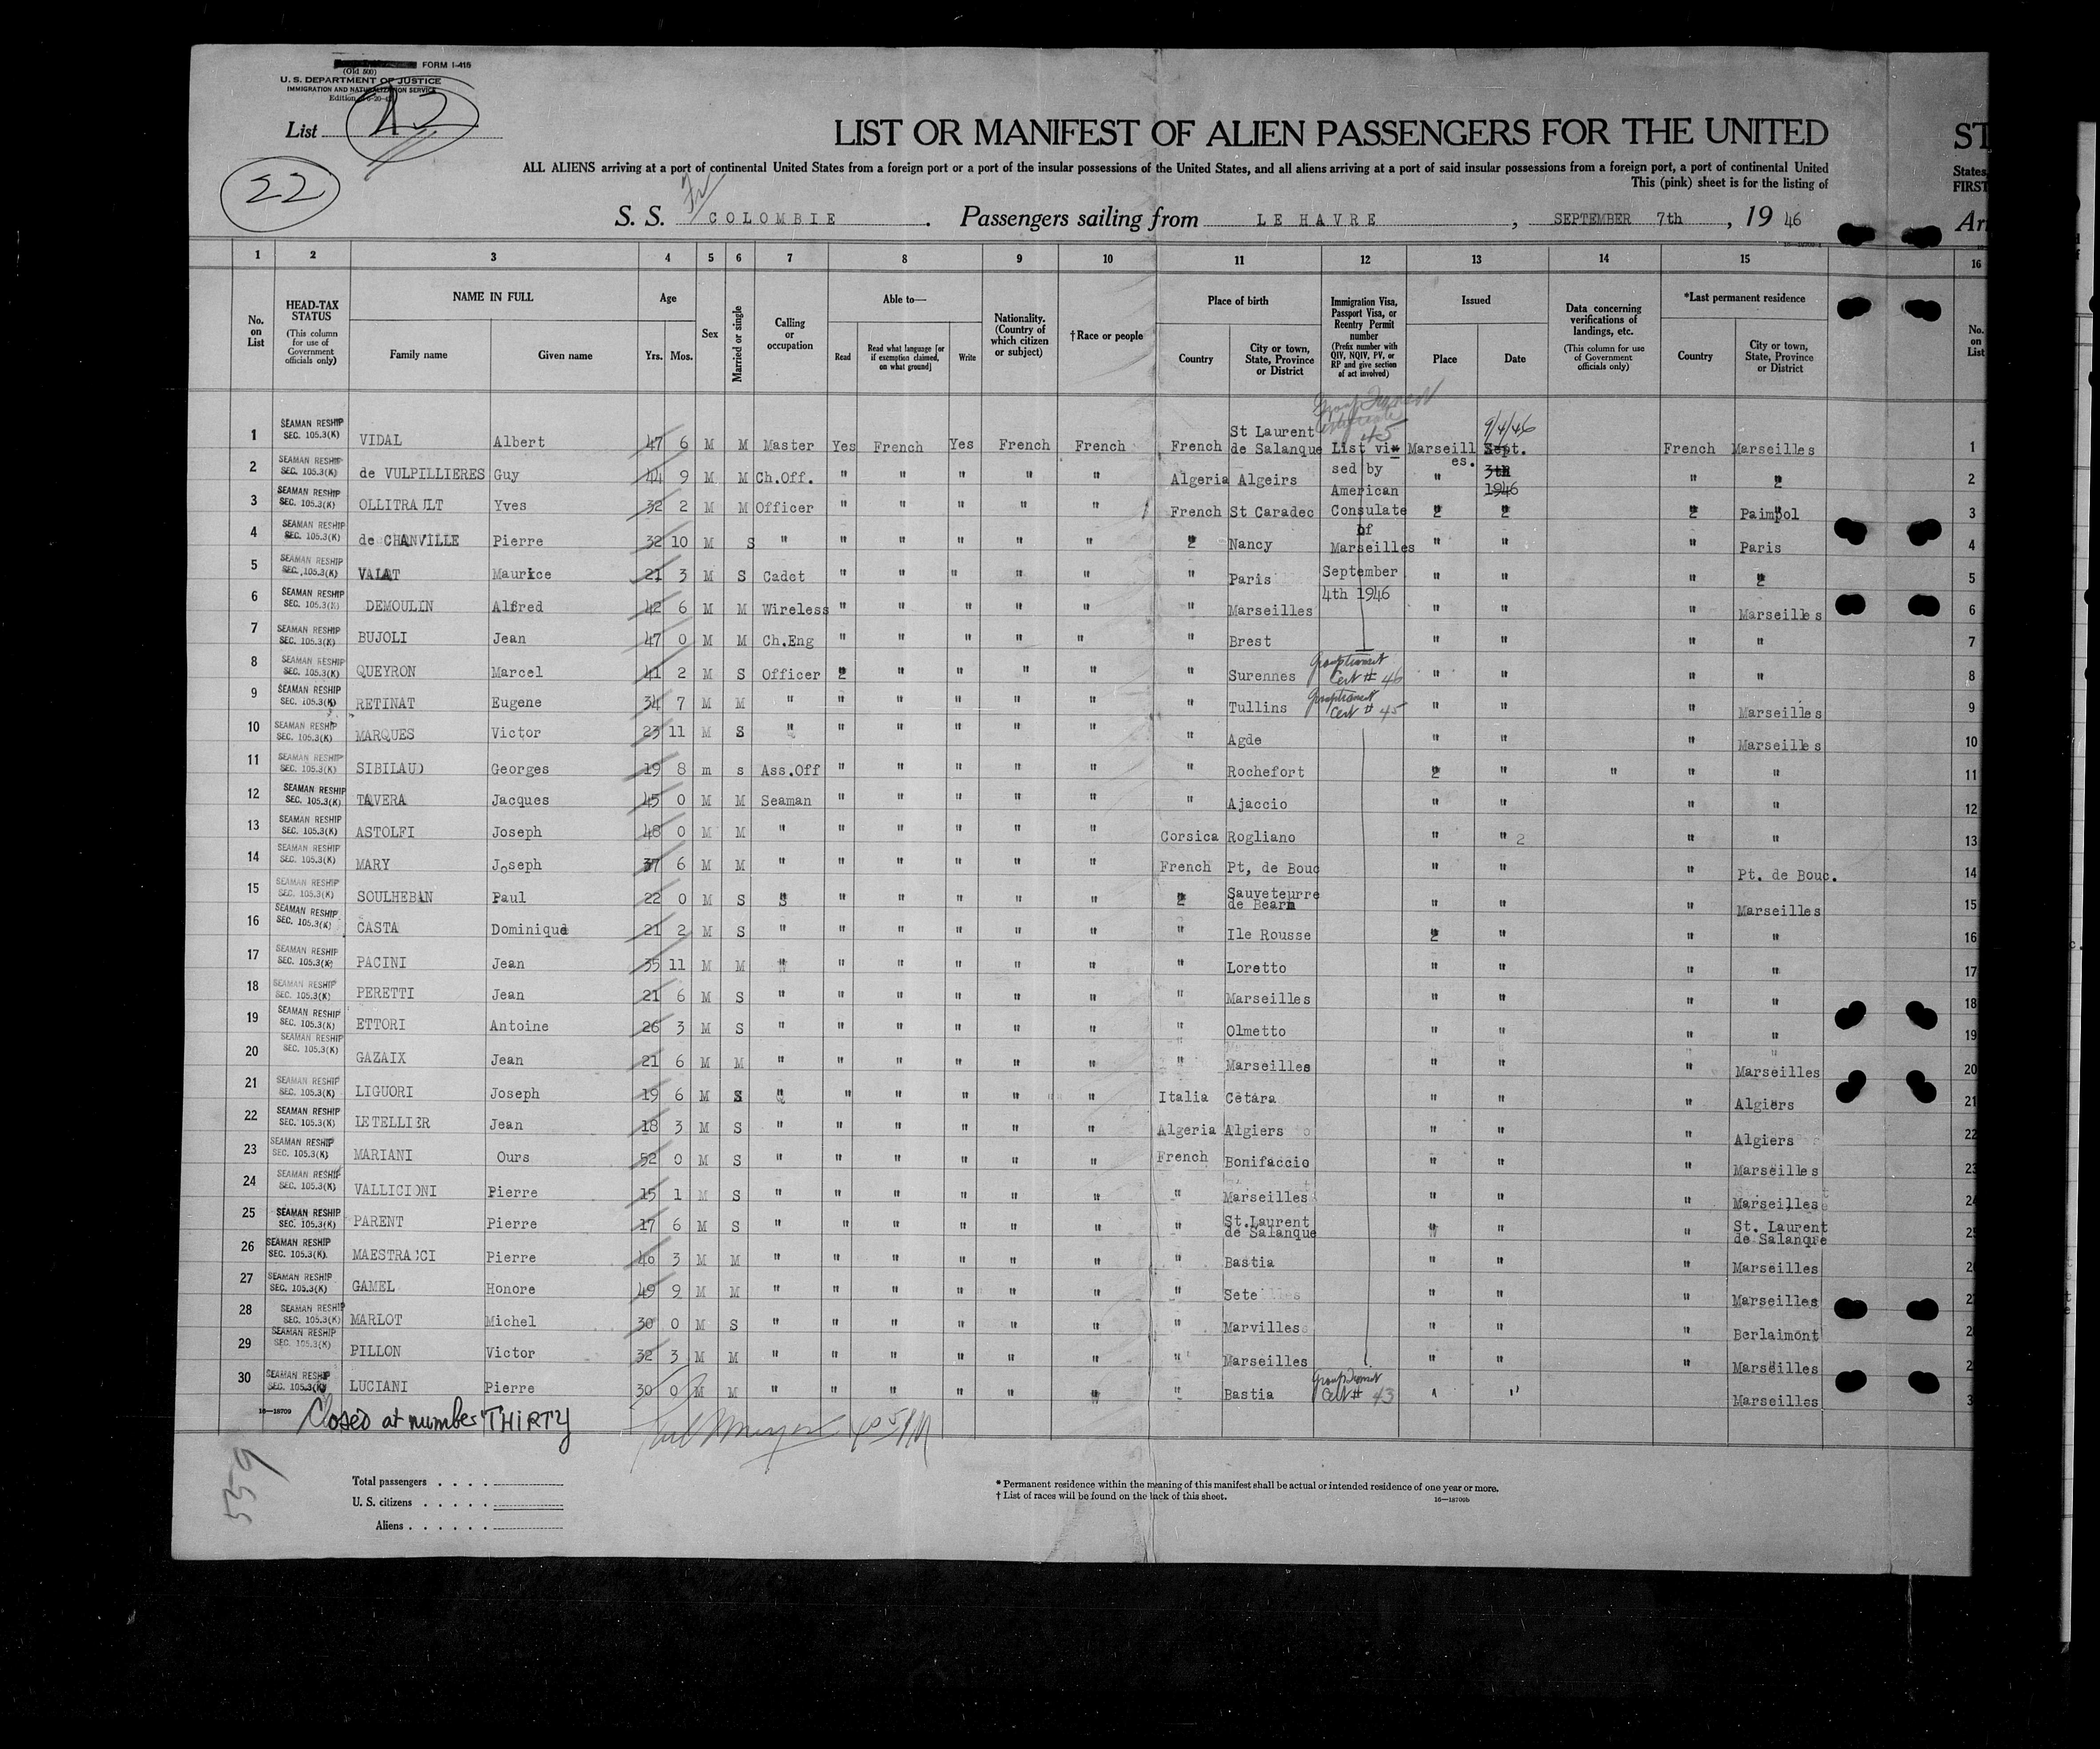 FORM I-415
(Old 500)
U. S. DEPARTMENT OF JUSTICE
IMMIGRATION AND NATURALIZATION SERVICE
List
22
LIST OR MANIFEST OF ALIEN PASSENGERS FOR THE UNITED ST
ALL ALIENS arriving at a port of continental United States from a foreign port or a port of the insular possessions of the United States, and all aliens arriving at a port of said insular possessions from a foreign port, a port of continental United States,
This (pink) sheet is for the listing of FIRST
S. S. COLOMBIE . Passengers sailing from LE HAVRE , SEPTEMBER 7th , 19 46
1 2 3 4 5 6 7 8 9 10 11 12 13 14 15 16
No. on List
HEAD-TAX STATUS (This column for use of Government officials only)
NAME IN FULL Family name Given name
Age Yrs. Mos.
Sex
Married or single
Calling or occupation
Able to— Read Read what language [or if exemption claimed, on what ground] Write
Nationality. (Country of which citizen or subject)
†Race or people
Place of birth Country City or town, State, Province or District
Immigration Visa, Passport Visa, or Reentry Permit number (Prefix number with QIV, NQIV, PV, or RP and give section of act involved)
Issued Place Date
Data concerning verifications of landings, etc. (This column for use of Government officials only)
*Last permanent residence Country City or town, State, Province or District
No. on List
1 SEAMAN RESHIP SEC. 105.3(K) VIDAL Albert 47 6 M M Master Yes French Yes French French French St Laurent de Salanque List vi- Marseilles. 9/4/46 Sept. French Marseilles 1
2 SEAMAN RESHIP SEC. 105.3(K) de VULPILLIERES Guy 44 9 M M Ch.Off. " " " " " Algeria Algeirs sed by American " 3th 1946 " " 2
3 SEAMAN RESHIP SEC. 105.3(K) OLLITRAULT Yves 32 2 M M Officer " " " " " French St Caradec Consulate " " " Paimpol 3
4 SEAMAN RESHIP SEC. 105.3(K) de CHANVILLE Pierre 32 10 M S " " " " " " " Nancy of Marseilles " " " Paris 4
5 SEAMAN RESHIP SEC. 105.3(K) VALAT Maurice 21 3 M S Cadet " " " " " " Paris September " " " " 5
6 SEAMAN RESHIP SEC. 105.3(K) DEMOULIN Alfred 42 6 M M Wireless " " " " " " Marseilles 4th 1946 " " " Marseilles 6
7 SEAMAN RESHIP SEC. 105.3(K) BUJOLI Jean 47 0 M M Ch.Eng " " " " " " Brest " " " " 7
8 SEAMAN RESHIP SEC. 105.3(K) QUEYRON Marcel 41 2 M S Officer " " " " " " Surennes Cert # 46 " " " " 8
9 SEAMAN RESHIP SEC. 105.3(K) RETINAT Eugene 34 7 M M " " " " " " " Tullins Cert # 45 " " " Marseilles 9
10 SEAMAN RESHIP SEC. 105.3(K) MARQUES Victor 23 11 M S " " " " " " " Agde " " " Marseilles 10
11 SEAMAN RESHIP SEC. 105.3(K) SIBILAUD Georges 19 8 m s Ass.Off " " " " " " Rochefort " " " " " 11
12 SEAMAN RESHIP SEC. 105.3(K) TAVERA Jacques 45 0 M M Seaman " " " " " " Ajaccio " " " " 12
13 SEAMAN RESHIP SEC. 105.3(K) ASTOLFI Joseph 48 0 M M " " " " " " Corsica Rogliano " " 2 " " 13
14 SEAMAN RESHIP SEC. 105.3(K) MARY Joseph 37 6 M M " " " " " " French Pt, de Bouc " " " Pt. de Bouc. 14
15 SEAMAN RESHIP SEC. 105.3(K) SOULHEBAN Paul 22 0 M S " " " " " " " Sauveteurre de Bearn " " " Marseilles 15
16 SEAMAN RESHIP SEC. 105.3(K) CASTA Dominique 21 2 M S " " " " " " " Ile Rousse " " " " 16
17 SEAMAN RESHIP SEC. 105.3(K) PACINI Jean 35 11 M M " " " " " " " Loretto " " " " 17
18 SEAMAN RESHIP SEC. 105.3(K) PERETTI Jean 21 6 M S " " " " " " " Marseilles " " " " 18
19 SEAMAN RESHIP SEC. 105.3(K) ETTORI Antoine 26 3 M S " " " " " " " Olmetto " " " " 19
20 SEAMAN RESHIP SEC. 105.3(K) GAZAIX Jean 21 6 M M " " " " " " " Marseilles " " " Marseilles 20
21 SEAMAN RESHIP SEC. 105.3(K) LIGUORI Joseph 19 6 M S " " " " " " Italia Cetara " " " Algiers 21
22 SEAMAN RESHIP SEC. 105.3(K) LETELLIER Jean 18 3 M S " " " " " " Algeria Algiers " " " Algiers 22
23 SEAMAN RESHIP SEC. 105.3(K) MARIANI Ours 52 0 M S " " " " " " French Bonifaccio " " " Marseilles 23
24 SEAMAN RESHIP SEC. 105.3(K) VALLICIONI Pierre 15 1 M S " " " " " " " Marseilles " " " Marseilles 24
25 SEAMAN RESHIP SEC. 105.3(K) PARENT Pierre 17 6 M S " " " " " " " St.Laurent de Salanque " " " St. Laurent de Salanque 25
26 SEAMAN RESHIP SEC. 105.3(K) MAESTRACCI Pierre 40 3 M M " " " " " " " Bastia " " " Marseilles 2
27 SEAMAN RESHIP SEC. 105.3(K) GAMEL Honore 49 9 M M " " " " " " " Sete " " " Marseilles 2
28 SEAMAN RESHIP SEC. 105.3(K) MARLOT Michel 30 0 M S " " " " " " " Marvilles " " " Berlaimont 2
29 SEAMAN RESHIP SEC. 105.3(K) PILLON Victor 32 3 M M " " " " " " " Marseilles " " " Marseilles 2
30 SEAMAN RESHIP SEC. 105.3(K) LUCIANI Pierre 30 0 M M " " " " " " " Bastia Cert # 43 " " Marseilles 3
16—18709 Closed at number THIRTY
559
Total passengers . . . .
U. S. citizens . . . . .
Aliens . . . . . .
* Permanent residence within the meaning of this manifest shall be actual or intended residence of one year or more.
† List of races will be found on the back of this sheet.
16—18709b